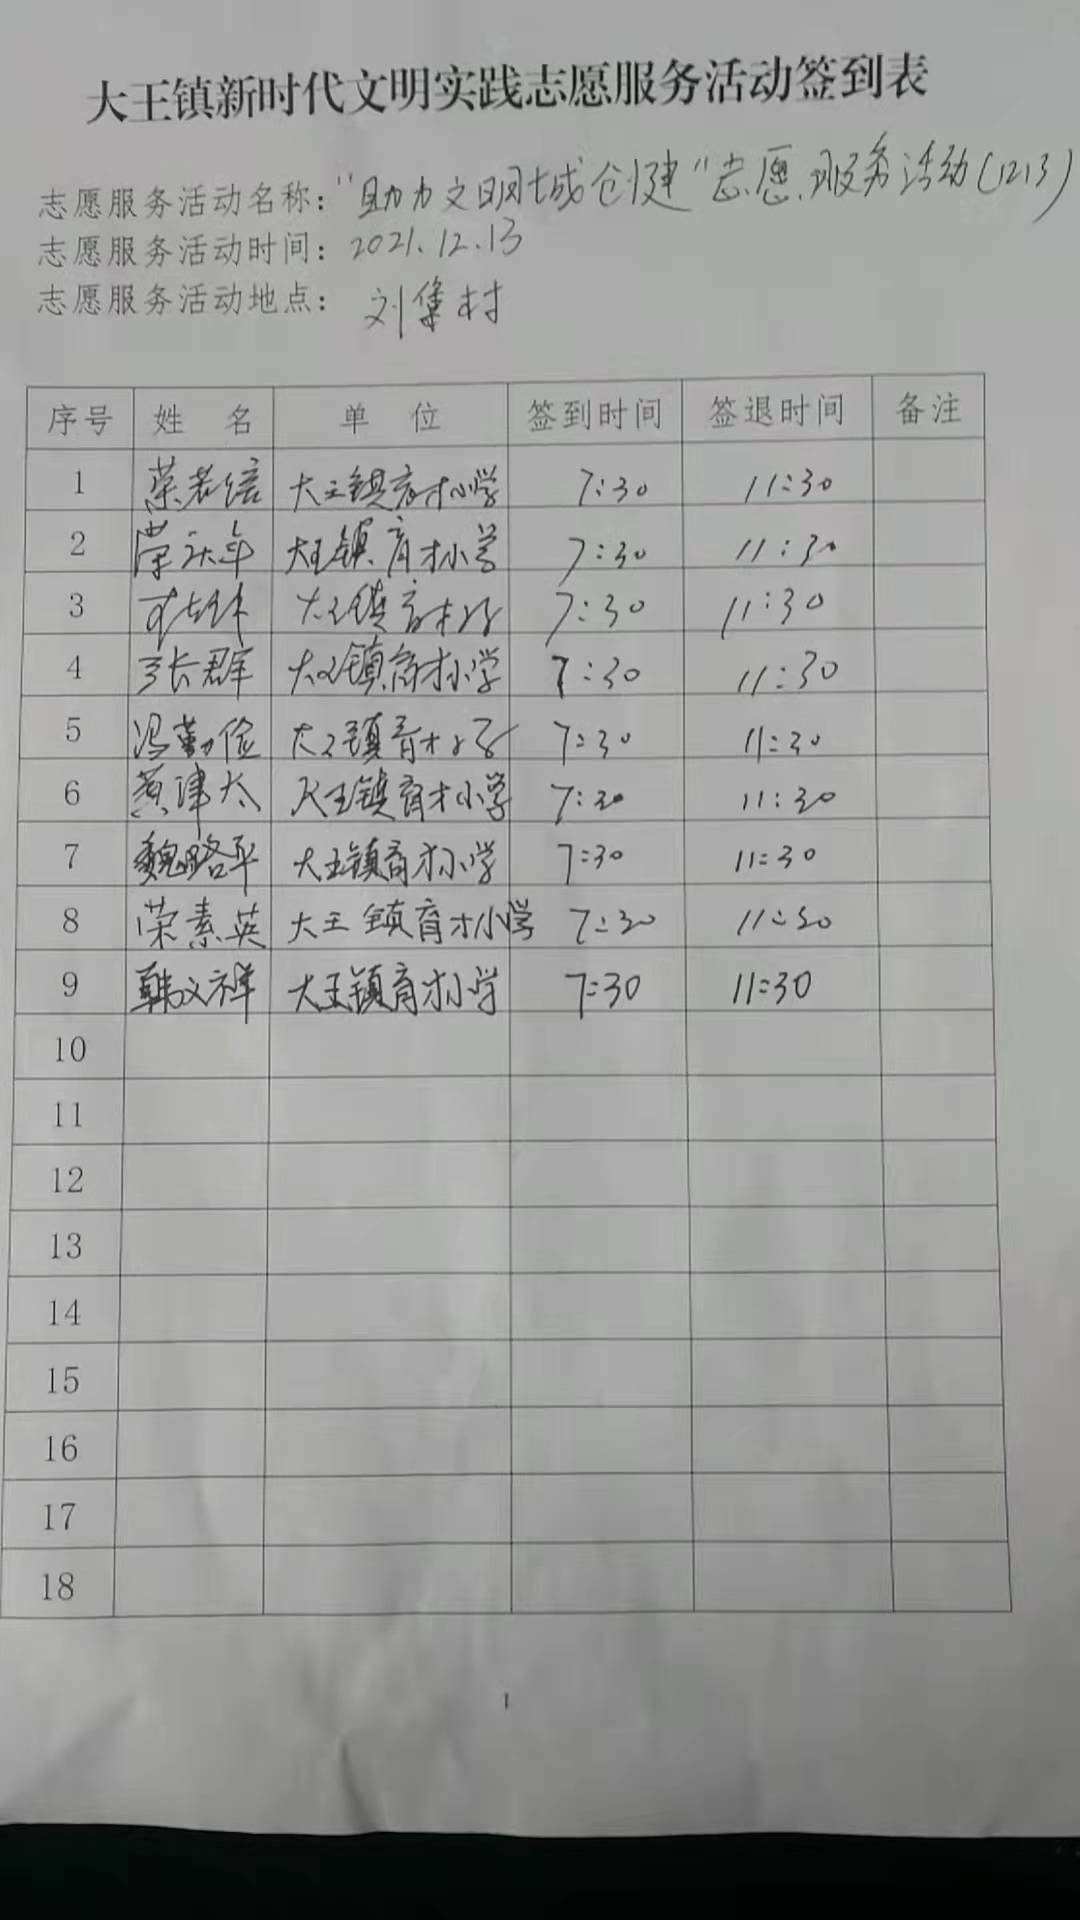 大王镇新时代文明实践志愿服务活动签到表
志愿服务活动名称："助力文明城创建"志愿服务活动(1213)
志愿服务活动时间：2021.12.13
志愿服务活动地点：刘集村
序号 姓 名 单 位 签到时间 签退时间 备注
1 大王镇育才小学 7:30 11:30
2 大王镇育才小学 7:30 11:30
3 大王镇育才小学 7:30 11:30
4 张群 大王镇育才小学 7:30 11:30
5 冯勤俭 大王镇育才小学 7:30 11:30
6 黄津太 大王镇育才小学 7:30 11:30
7 魏路平 大王镇育才小学 7:30 11:30
8 荣素英 大王镇育才小学 7:30 11:30
9 韩义祥 大王镇育才小学 7:30 11:30
10
11
12
13
14
15
16
17
18
1